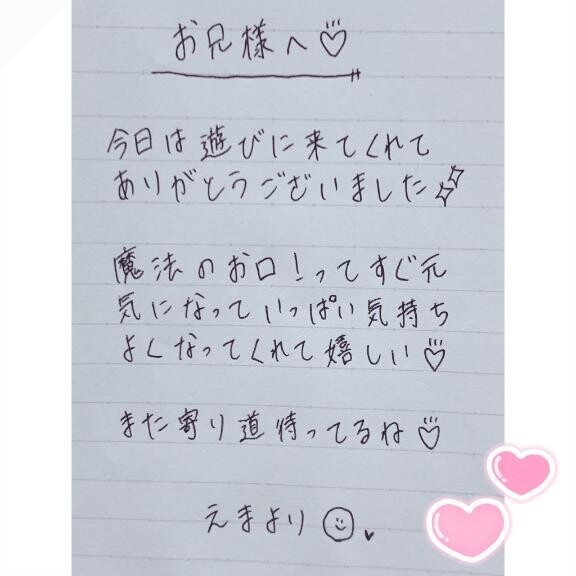 お兄様へ♡
今日は遊びに来てくれて
ありがとうございました
魔法のお口!ってすぐ元
気になっていっぱい気持ち
よくなってくれて嬉しい♡
また寄り道待ってるね♡
えまより